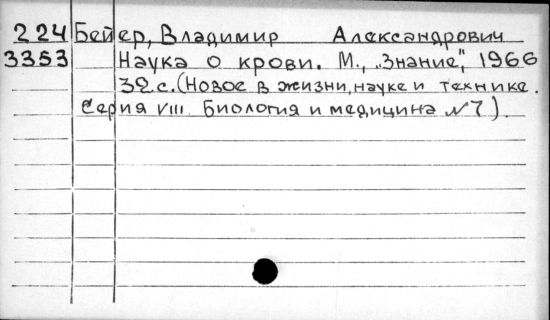 224 Бейер, Владимир Александрович
3353 Наука о крови. М., „Знание", 1966
32 с. (Новое в жизни, науке и технике.
Серия VIII. Биология и медицина №7).